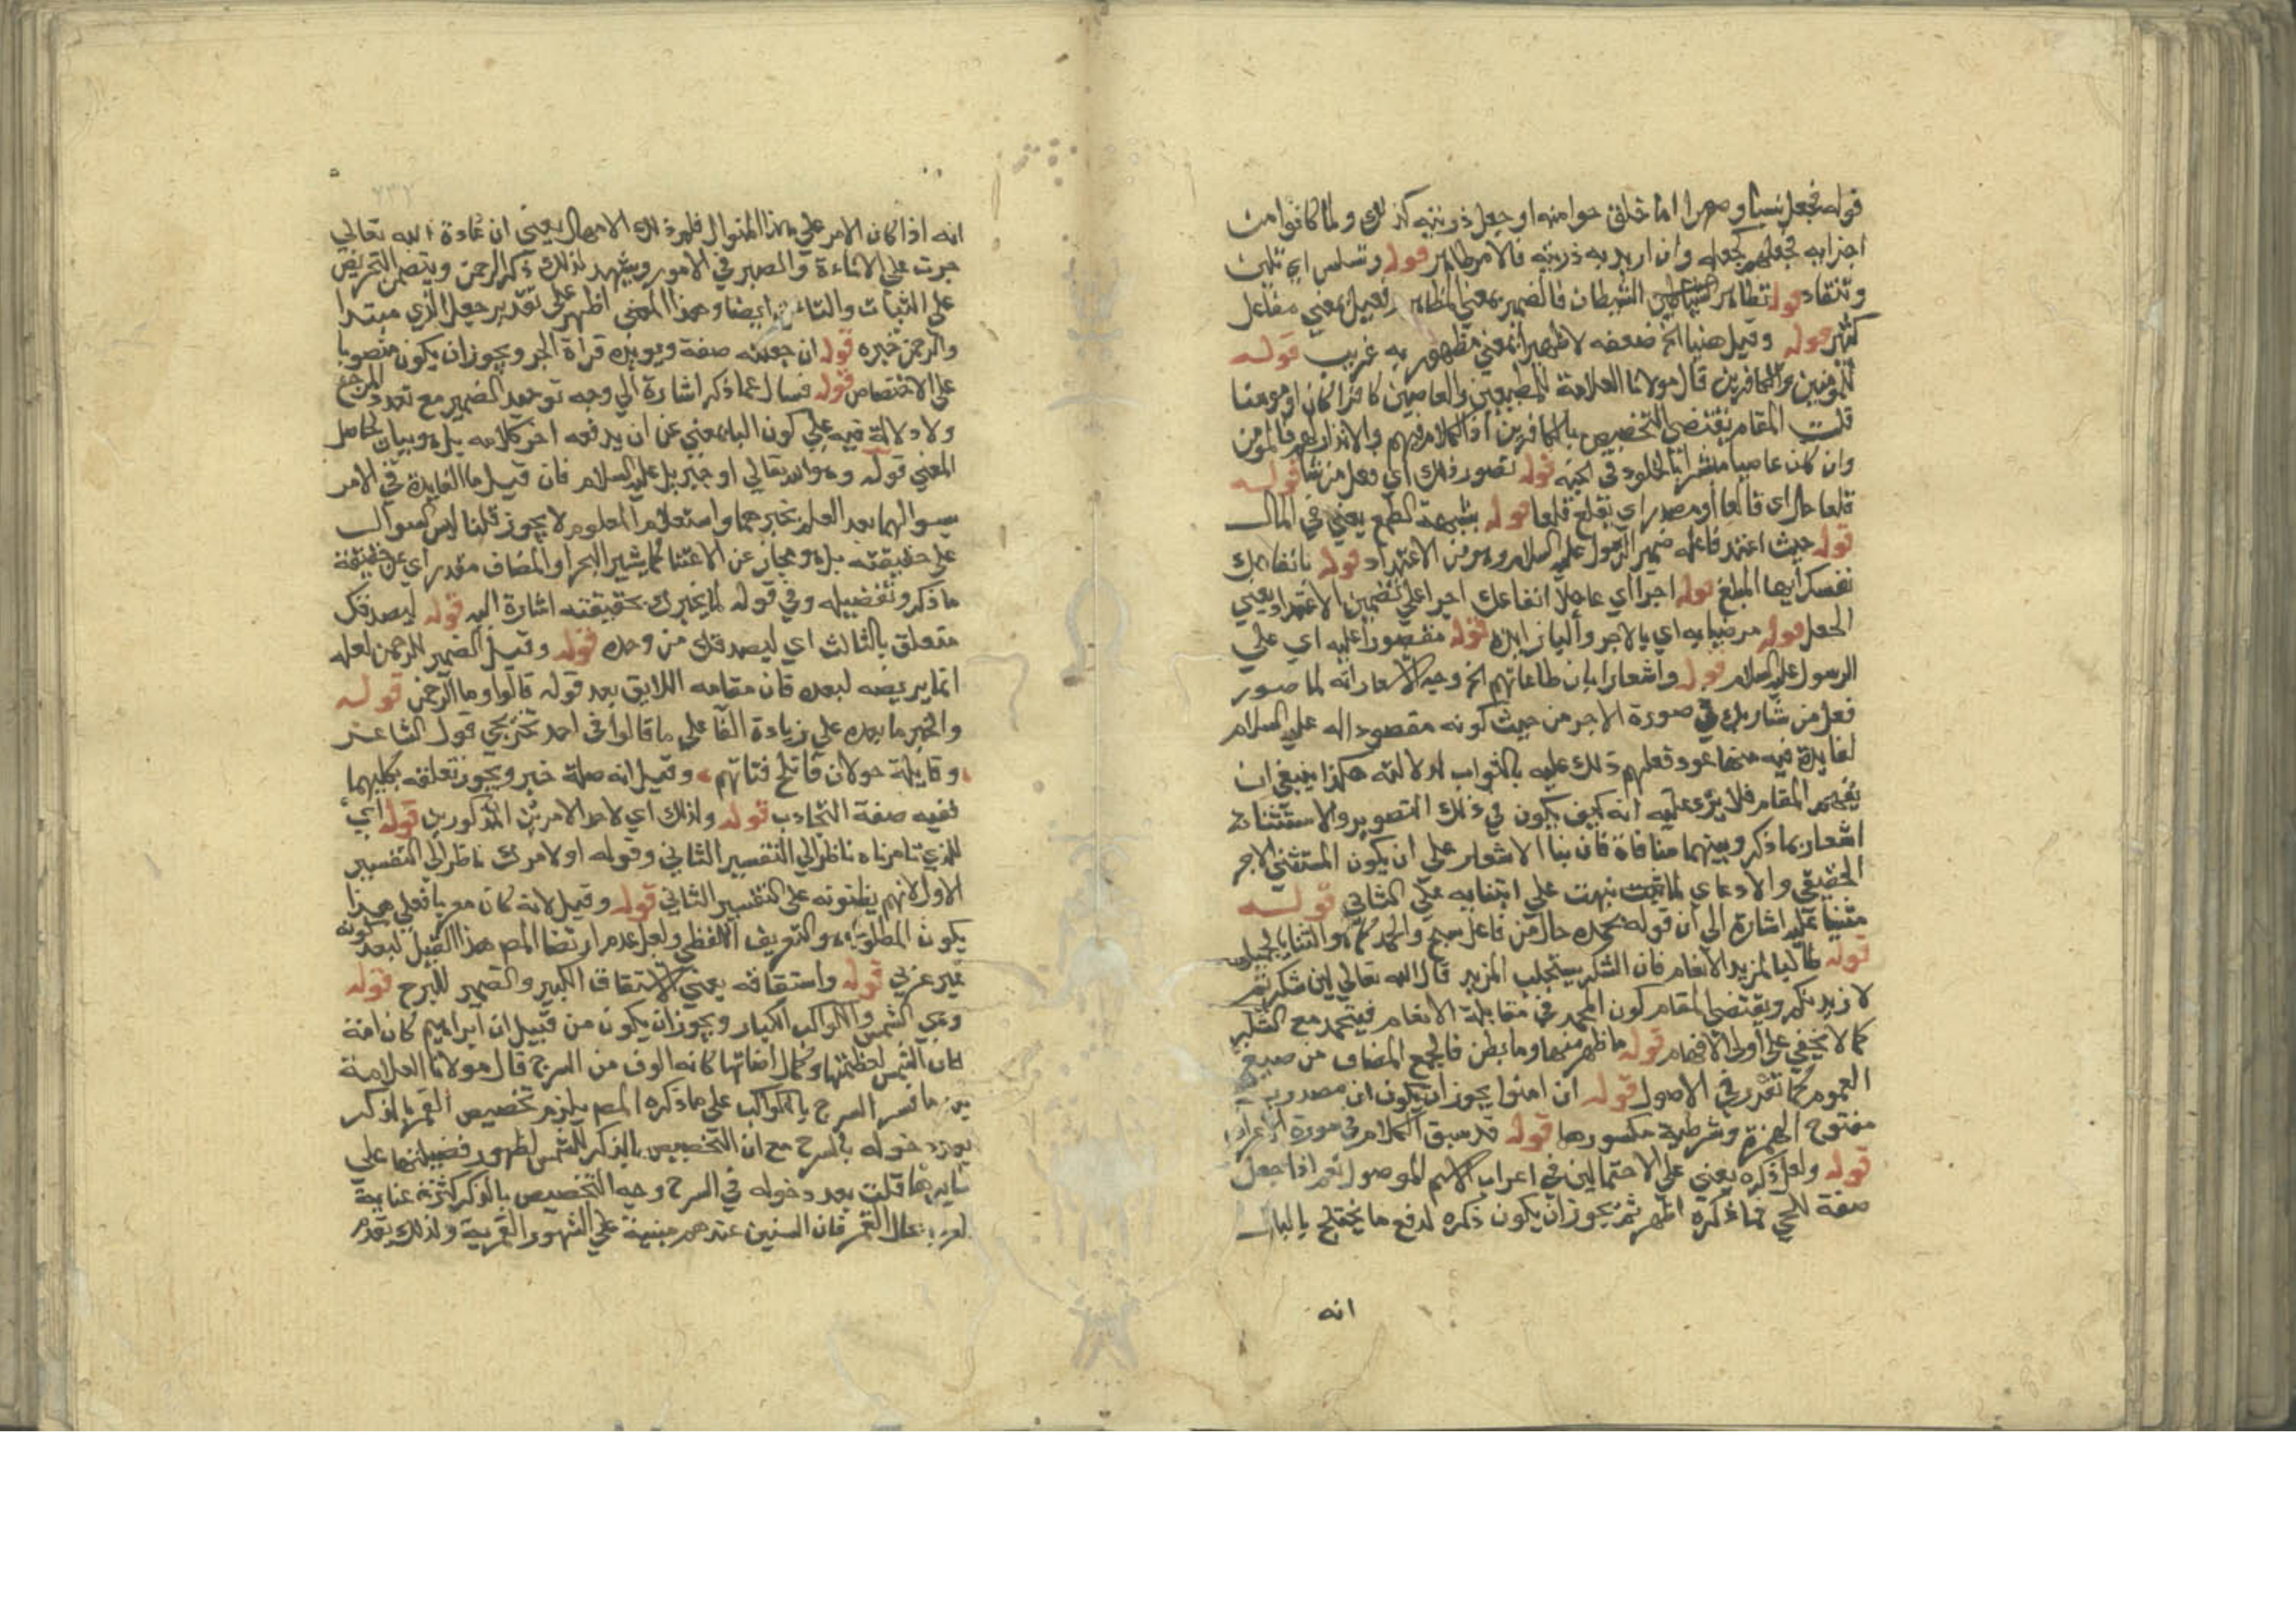 قوله فجعل نسبا وصهرا اما خلق حوا منه او جعل ذريته كذلك ولما كانوا من
اجزايه فجعلهم كجعله وان اريد به ذريته فالامر ظاهر قوله وتسلس اي تلين
وتنقاد قوله تظاهر الشيطان فالضمير بمعني المظاهر فعيل بمعني مفاعل
كثير قوله وقيل هينا الخ ضعفه لان ظهيرا بمعني مظهور به غريب قوله
للمومنين والكافرين قال مولانا العلامة للمطيعين والعاصين كافرا كان او مومنا
قلت المقام يقتضي التخصيص بالكافرين اذ الكلام فيهم والانذار لهم فالمومن
وان كان عاصيا مبشر بالخلود في الجنة قوله تصور ذلك اي فعل من شا قوله
قلعا حال اي قالعا او مصدر اي يقلع قلعا قوله بشبهة الطمع يعني في المال
قوله حيث اعتد فاعله ضمير الرسول عليه السلام وهو من الاعتداد قوله بانفاعك
نفسك ايها المبلغ قوله اجرا اي عاجلا انفاعك اجرا علي تضمين الاعتداد يعني
الجعل قوله مرضيا به اي بالاجر والبا زايدة قوله مقصورا عليه اي علي
الرسول عليه السلام قوله واشعارا بان طاعاتهم الخ وجه الاشعار انه لما صور
فعل من شا ربك في صورة الاجر من حيث كونه مقصودا له عليه السلام
لفايدة فيه منها عود فعلهم ذلك عليه بالثواب لدلالته هكذا ينبغي ان
يفهم المقام فلا يرد عليه انه كيف يكون في ذلك التصوير والاستثنا
اشعار بما ذكر وبينهما منافاة فان بنا الاشعار علي ان يكون المستثني الاجر
الحقيقي والادعاي لما ثبت نبهت علي ابتنايه علي الثاني قوله
مثنيا عليه اشارة الي ان قوله بحمده حال من فاعل سبح والحمد هو الثنا بالجميل
قوله طالبا لمزيد الانعام فان الشكر يستجلب المزيد قال الله تعالي لين شكرتم
لازيدنكم ويقتضي المقام كون الحمد في مقابلة الانعام فيتحد مع الشكر
كما لا يخفي علي اولي الافهام قوله ما ظهر منها وما بطن فالجمع المضاف من صيغ
العموم كما تقرر في الاصول قوله ان امنوا يجوز ان يكون ان مصدرية
مفتوح الهمزة وشرطية مكسورها قوله قد سبق الكلام في سورة الاعراف
قوله ولعل ذكره يعني علي الاحتمالين في اعراب الاسم الموصول نعم اذا جعل
صفة للحي فما ذكره اظهر ثم يجوز ان يكون ذكره لدفع ما يختلج بالبال
انه
انه اذا كان الامر علي هذا المنوال فلم ذلك الامهال يعني ان عادة الله تعالي
جرت علي الاناءة والصبر في الامور ويشهد لذلك ذكر الرحمن ويتضمن التحريض
علي الثبات والتاني ايضا وهذا المعني اظهر علي تقدير جعل الذي مبتدا
والرحمن خبره قوله ان جعلته صفة ويويده قراة الجر ويجوز ان يكون منصوبا
علي الاختصاص قوله فسال عما ذكر اشارة الي وجه توحيد الضمير مع تعدد المرجع
ولا دلالة فيه علي كون البا بمعني عن ان يدفعه اخر كلامه بل هو بيان لحاصل
المعني قوله وهو الله تعالي او جبريل عليه السلام فان قيل ما الفايدة في الامر
بسوالهما بعد العلم بخبرهما واستعلام المعلوم لا يجوز قلنا ليس السوال
علي حقيقته بل هو مجاز عن الاعتنا كما يشير البحر او المضاف مقدر اي عن حقيقة
ما ذكر وتفضيله وفي قوله لما يخبرك بحقيقته اشارة اليه قوله ليصدقك
متعلق بالثالث اي ليصدقك من وحده قوله وقيل الضمير للرحمن لعله
انما يريضه لبعده فان مقامه اللايق بعد قوله قالوا وما الرحمن قوله
والخبر ما بعده علي زيادة الفا علي ما قالوا في احد تخريجي قول الشاعر
وقايلة خولان فانكح فتاتهم وقيل انه صلة خبر ويجوز تعلقه بكليهما
ففيه صفة التجاذب قوله ولذلك اي لاحد الامرين المذكورين قوله اي
للذي تامرناه ناظر الي التفسير الثاني وقوله او لامرك ناظر الي التفسير
الاول لانهم يظنونه علي التفسير الثاني قوله وقيل لانه كان معربا فعلي هذا
يكون المطلوب هو التعريف اللفظي ولعل عدم ارتضا المص هذا القيل لبعد كونه
غير عربي قوله واشتقاقه يعني الاشتقاق الكبير والضمير للبرج قوله
وهي الشمس والكواكب الكبار ويجوز ان يكون من قبيل ان ابراهيم كان امة
كان الشمس لعظمتها وكمال اضاتها كانه الوف من السرج قال مولانا العلامة
ما فسر السرج بالكواكب علي ما ذكره المص يلزم تخصيص القمر بالذكر
بعد دخوله بالسرج مع ان التخصيص بالذكر للشمس لظهور فضيلتها علي
سايرها قلت بعد دخوله في السرج وجه التخصيص بالذكر كثرة عناية
العرب بحال القمر فان السنين عندهم مبنية علي الشهور القمرية ولذلك يقدم